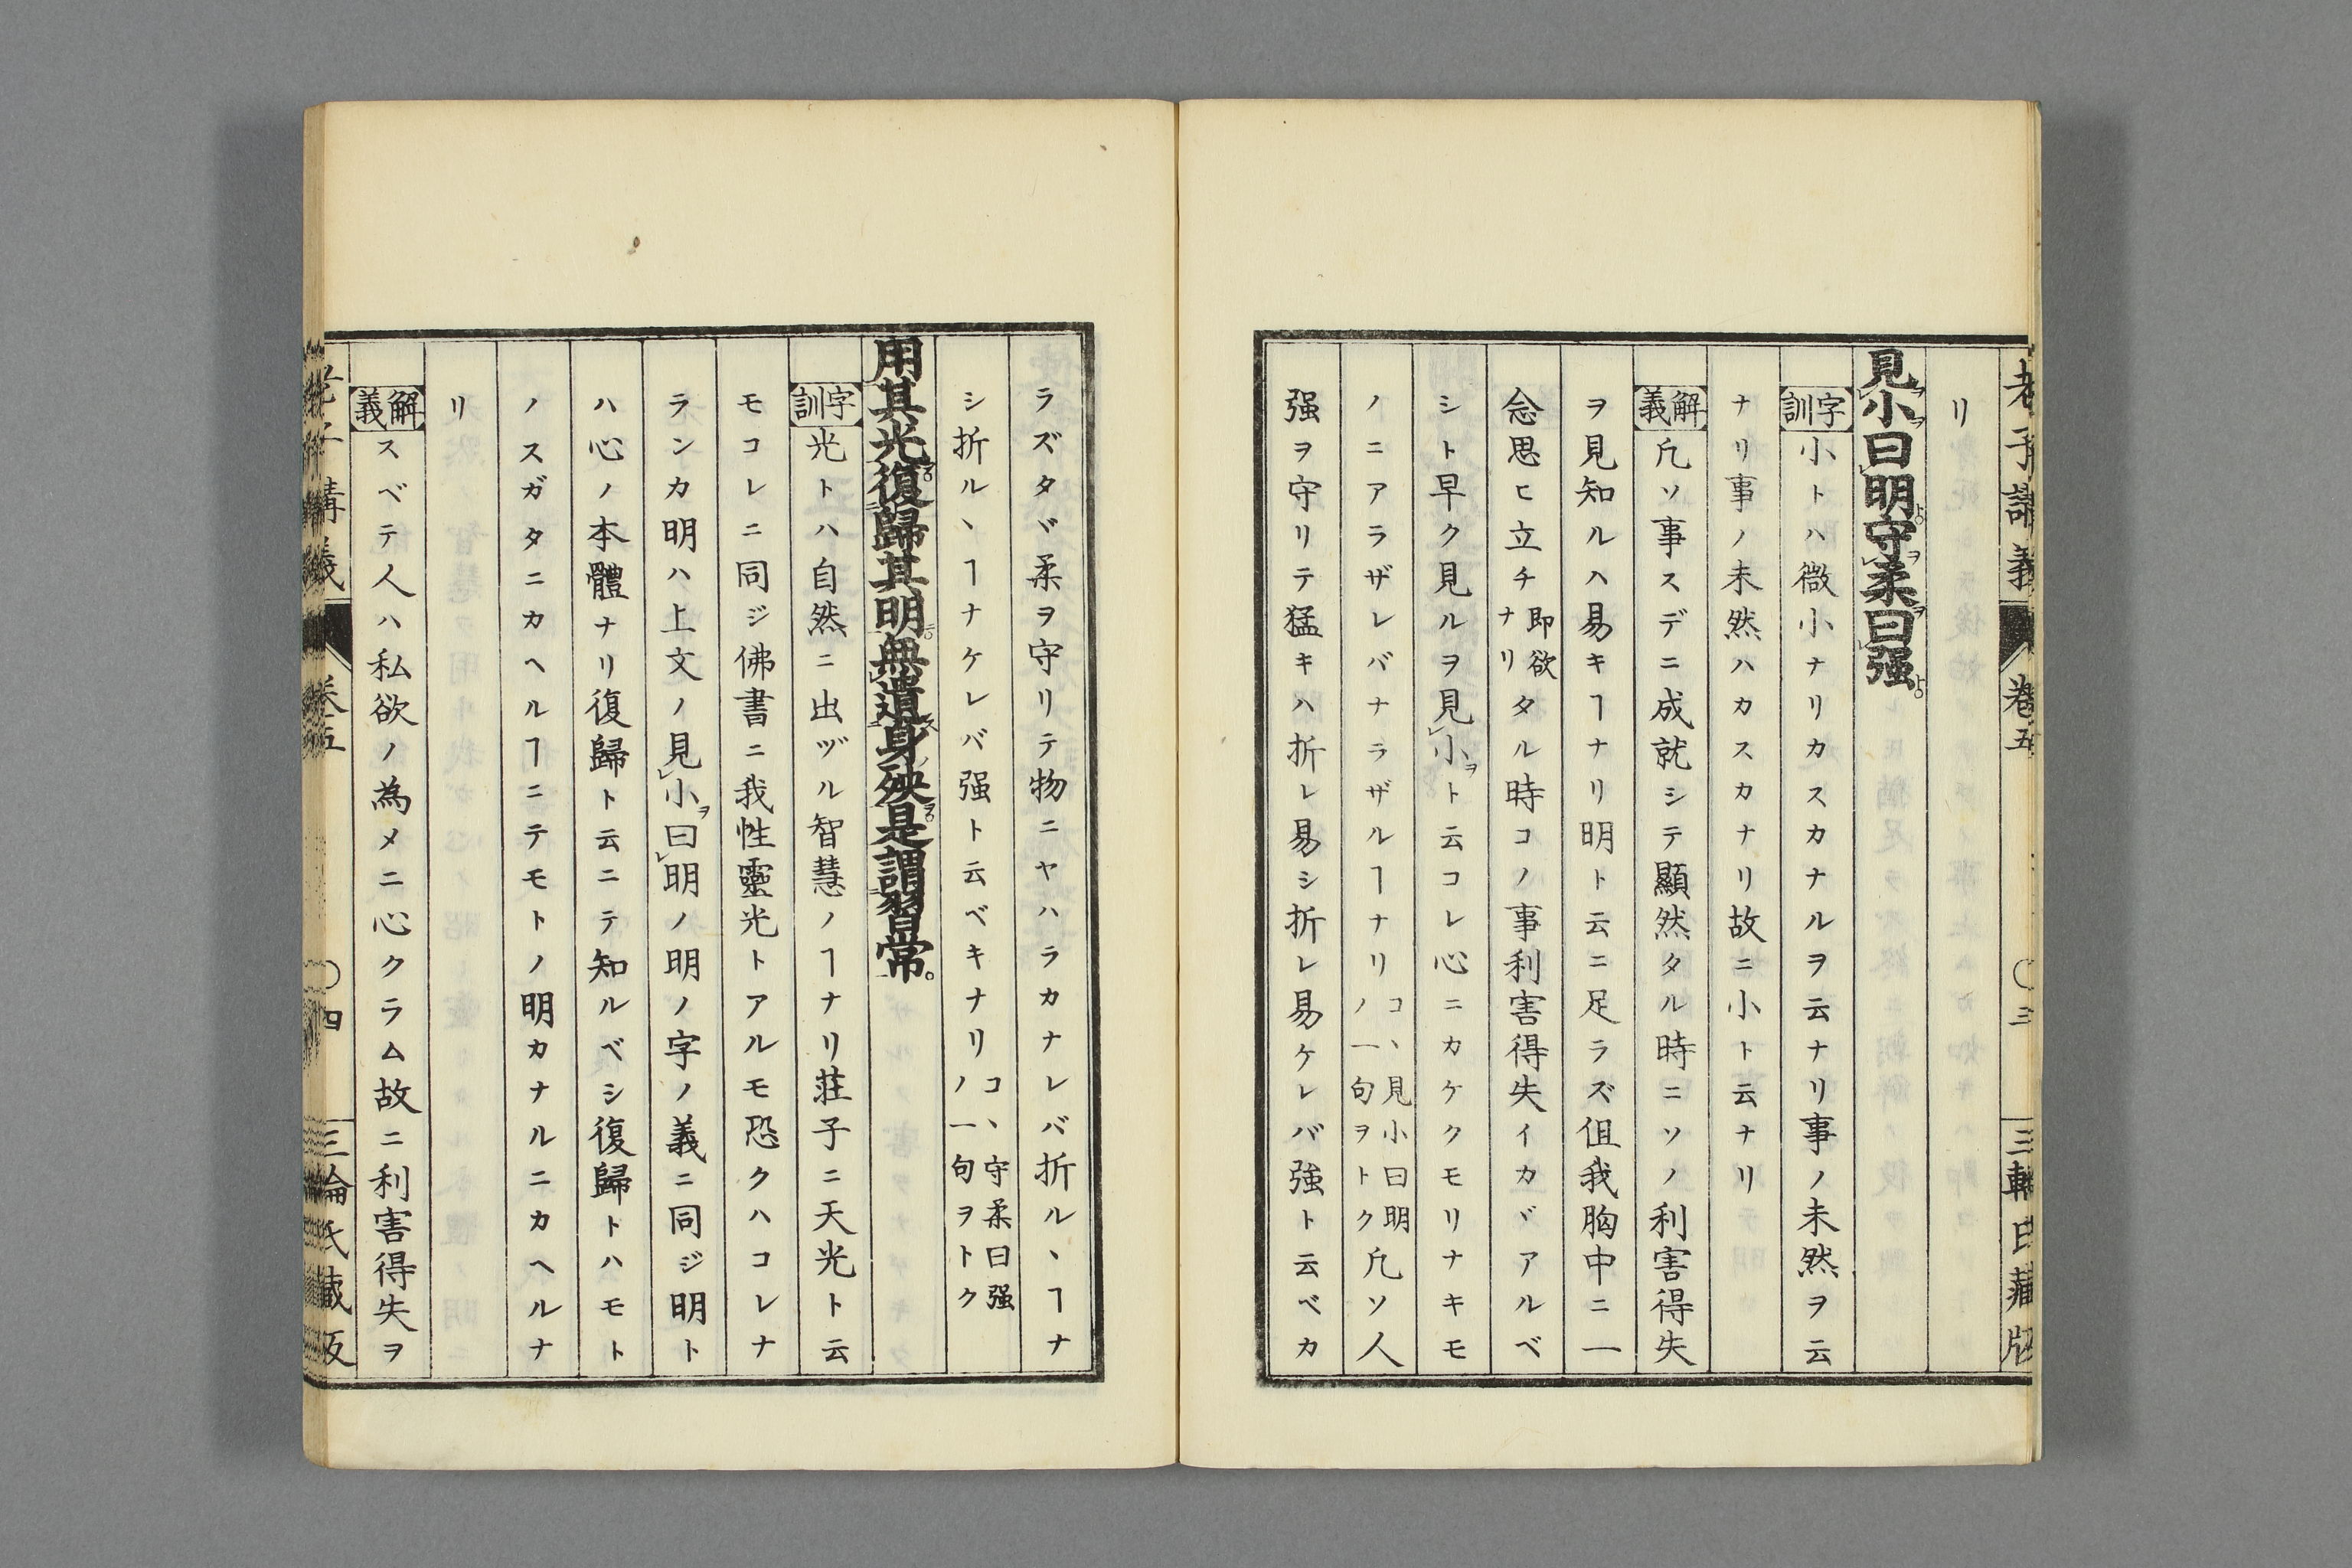 老子講義 卷五 〇三 三輪氏藏版
リ
見小曰明守柔曰强
字訓 小トハ微小ナリカスカナルヲ云ナリ事ノ未然ヲ云
ナリ事ノ未然ハカスカナリ故ニ小ト云ナリ
解義 凡ソ事スデニ成就シテ顯然タル時ニソノ利害得失
ヲ見知ルハ易キヿナリ明ト云ニ足ラズ但我胸中ニ一
念思ヒ立チ即欲ナリタル時コノ事利害得失イカヾアルベ
シト早ク見ルヲ見レ小ヲト云コレ心ニカケクモリナキモ
ノニアラザレバナラザルヿナリコヽ見小曰明ノ一句ヲトク凡ソ人
强ヲ守リテ猛キハ折レ易シ折レ易ケレバ强ト云ベカ
ラズタヾ柔ヲ守リテ物ニヤハラカナレバ折ルヽヿナ
シ折ルヽヿナケレバ强ト云ベキナリコヽ守柔曰强ノ一句ヲトク
用其光復歸其明無遺身殃是謂習常
字訓 光トハ自然ニ出ヅル智慧ノヿナリ莊子ニ天光ト云
モコレニ同ジ佛書ニ我性靈光トアルモ恐クハコレナ
ランカ明ハ上文ノ見レ小ヲ曰レ明ノ明ノ字ノ義ニ同ジ明ト
ハ心ノ本體ナリ復歸ト云ニテ知ルベシ復歸トハモト
ノスガタニカヘルヿニテモトノ明カナルニカヘルナ
リ
解義 スベテ人ハ私欲ノ為メニ心クラム故ニ利害得失ヲ
老子講義 卷五 〇四 三輪氏藏版